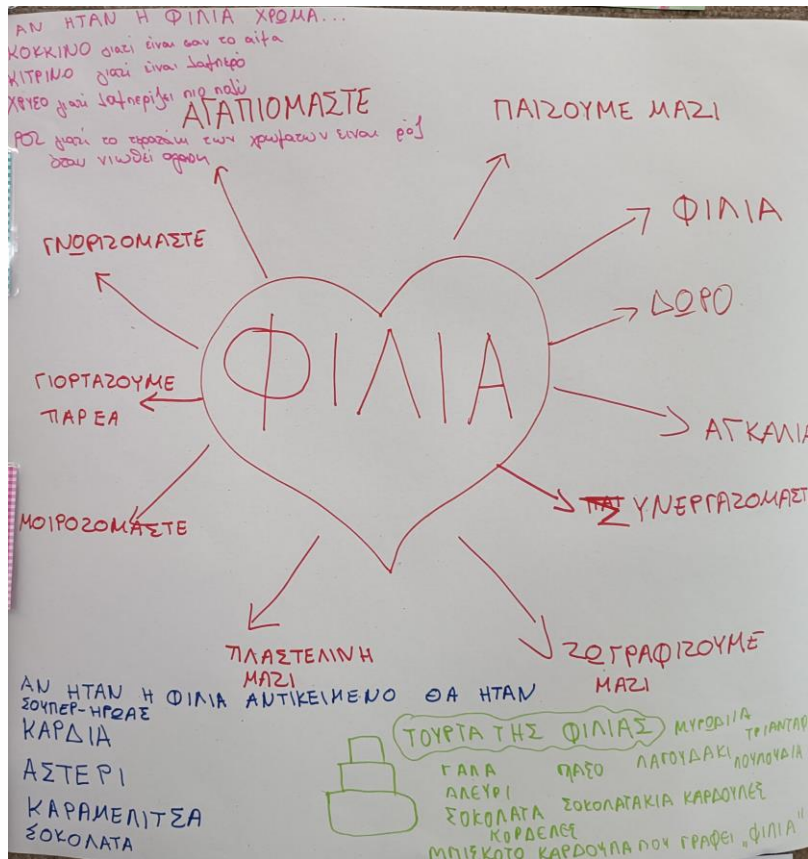 ΑΝ ΗΤΑΝ Η ΦΙΛΙΑ ΧΡΩΜΑ...
ΚΟΚΚΙΝΟ γιατί είναι σαν το αίμα
ΚΙΤΡΙΝΟ γιατί είναι λαμπερό
ΧΡΥΣΟ γιατί λαμπερίζει πιο πολύ
ΡΟΖ γιατί το τερατάκι των χρωμάτων είναι ρόζ
όταν νιωθεί αγάπη
ΑΓΑΠΙΟΜΑΣΤΕ
ΠΑΙΖΟΥΜΕ ΜΑΖΙ
ΦΙΛΙΑ
ΓΝΩΡΙΖΟΜΑΣΤΕ
ΔΩΡΟ
ΦΙΛΙΑ
ΓΙΟΡΤΑΖΟΥΜΕ
ΠΑΡΕΑ
ΑΓΚΑΛΙΑ
ΣΥΝΕΡΓΑΖΟΜΑΣΤ
ΜΟΙΡΟΖΟΜΑΣΤΕ
ΠΛΑΣΤΕΛΙΝΗ
ΜΑΖΙ
ΖΩΓΡΑΦΙΖΟΥΜΕ
ΜΑΖΙ
ΑΝ ΗΤΑΝ Η ΦΙΛΙΑ ΑΝΤΙΚΕΙΜΕΝΟ ΘΑ ΗΤΑΝ
ΣΟΥΠΕΡ-ΗΡΩΑΣ
ΚΑΡΔΙΑ
ΑΣΤΕΡΙ
ΚΑΡΑΜΕΛΙΤΣΑ
ΣΟΚΟΛΑΤΑ
ΤΟΥΡΤΑ ΤΗΣ ΦΙΛΙΑΣ
ΜΥΡΩΔΙΙΑ
ΤΡΙΑΝΤΑΦ
ΓΑΛΑ ΠΑΣΟ ΛΑΓΟΥΔΑΚΙ ΛΟΥΛΟΥΔΙΑ
ΑΛΕΥΡΙ
ΣΟΚΟΛΑΤΑ ΣΟΚΟΛΑΤΑΚΙΑ ΚΑΡΔΟΥΛΕΣ
ΚΟΡΔΕΛΕΣ
ΜΠΙΣΚΟΤΟ ΚΑΡΔΟΥΛΑ ΠΟΥ ΓΡΑΦΕΙ „ΦΙΛΙΑ"